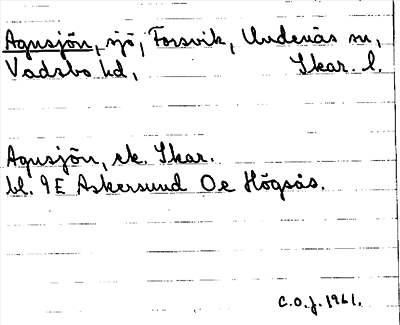 Agnsjön, sjö, Forsvik, Undenäs sn,
Vadsbo hd, Skar. l.
Agnsjön, ek. Skar.
bl. 9E Askersund Öe Högsås.
C.O.J. 1961.